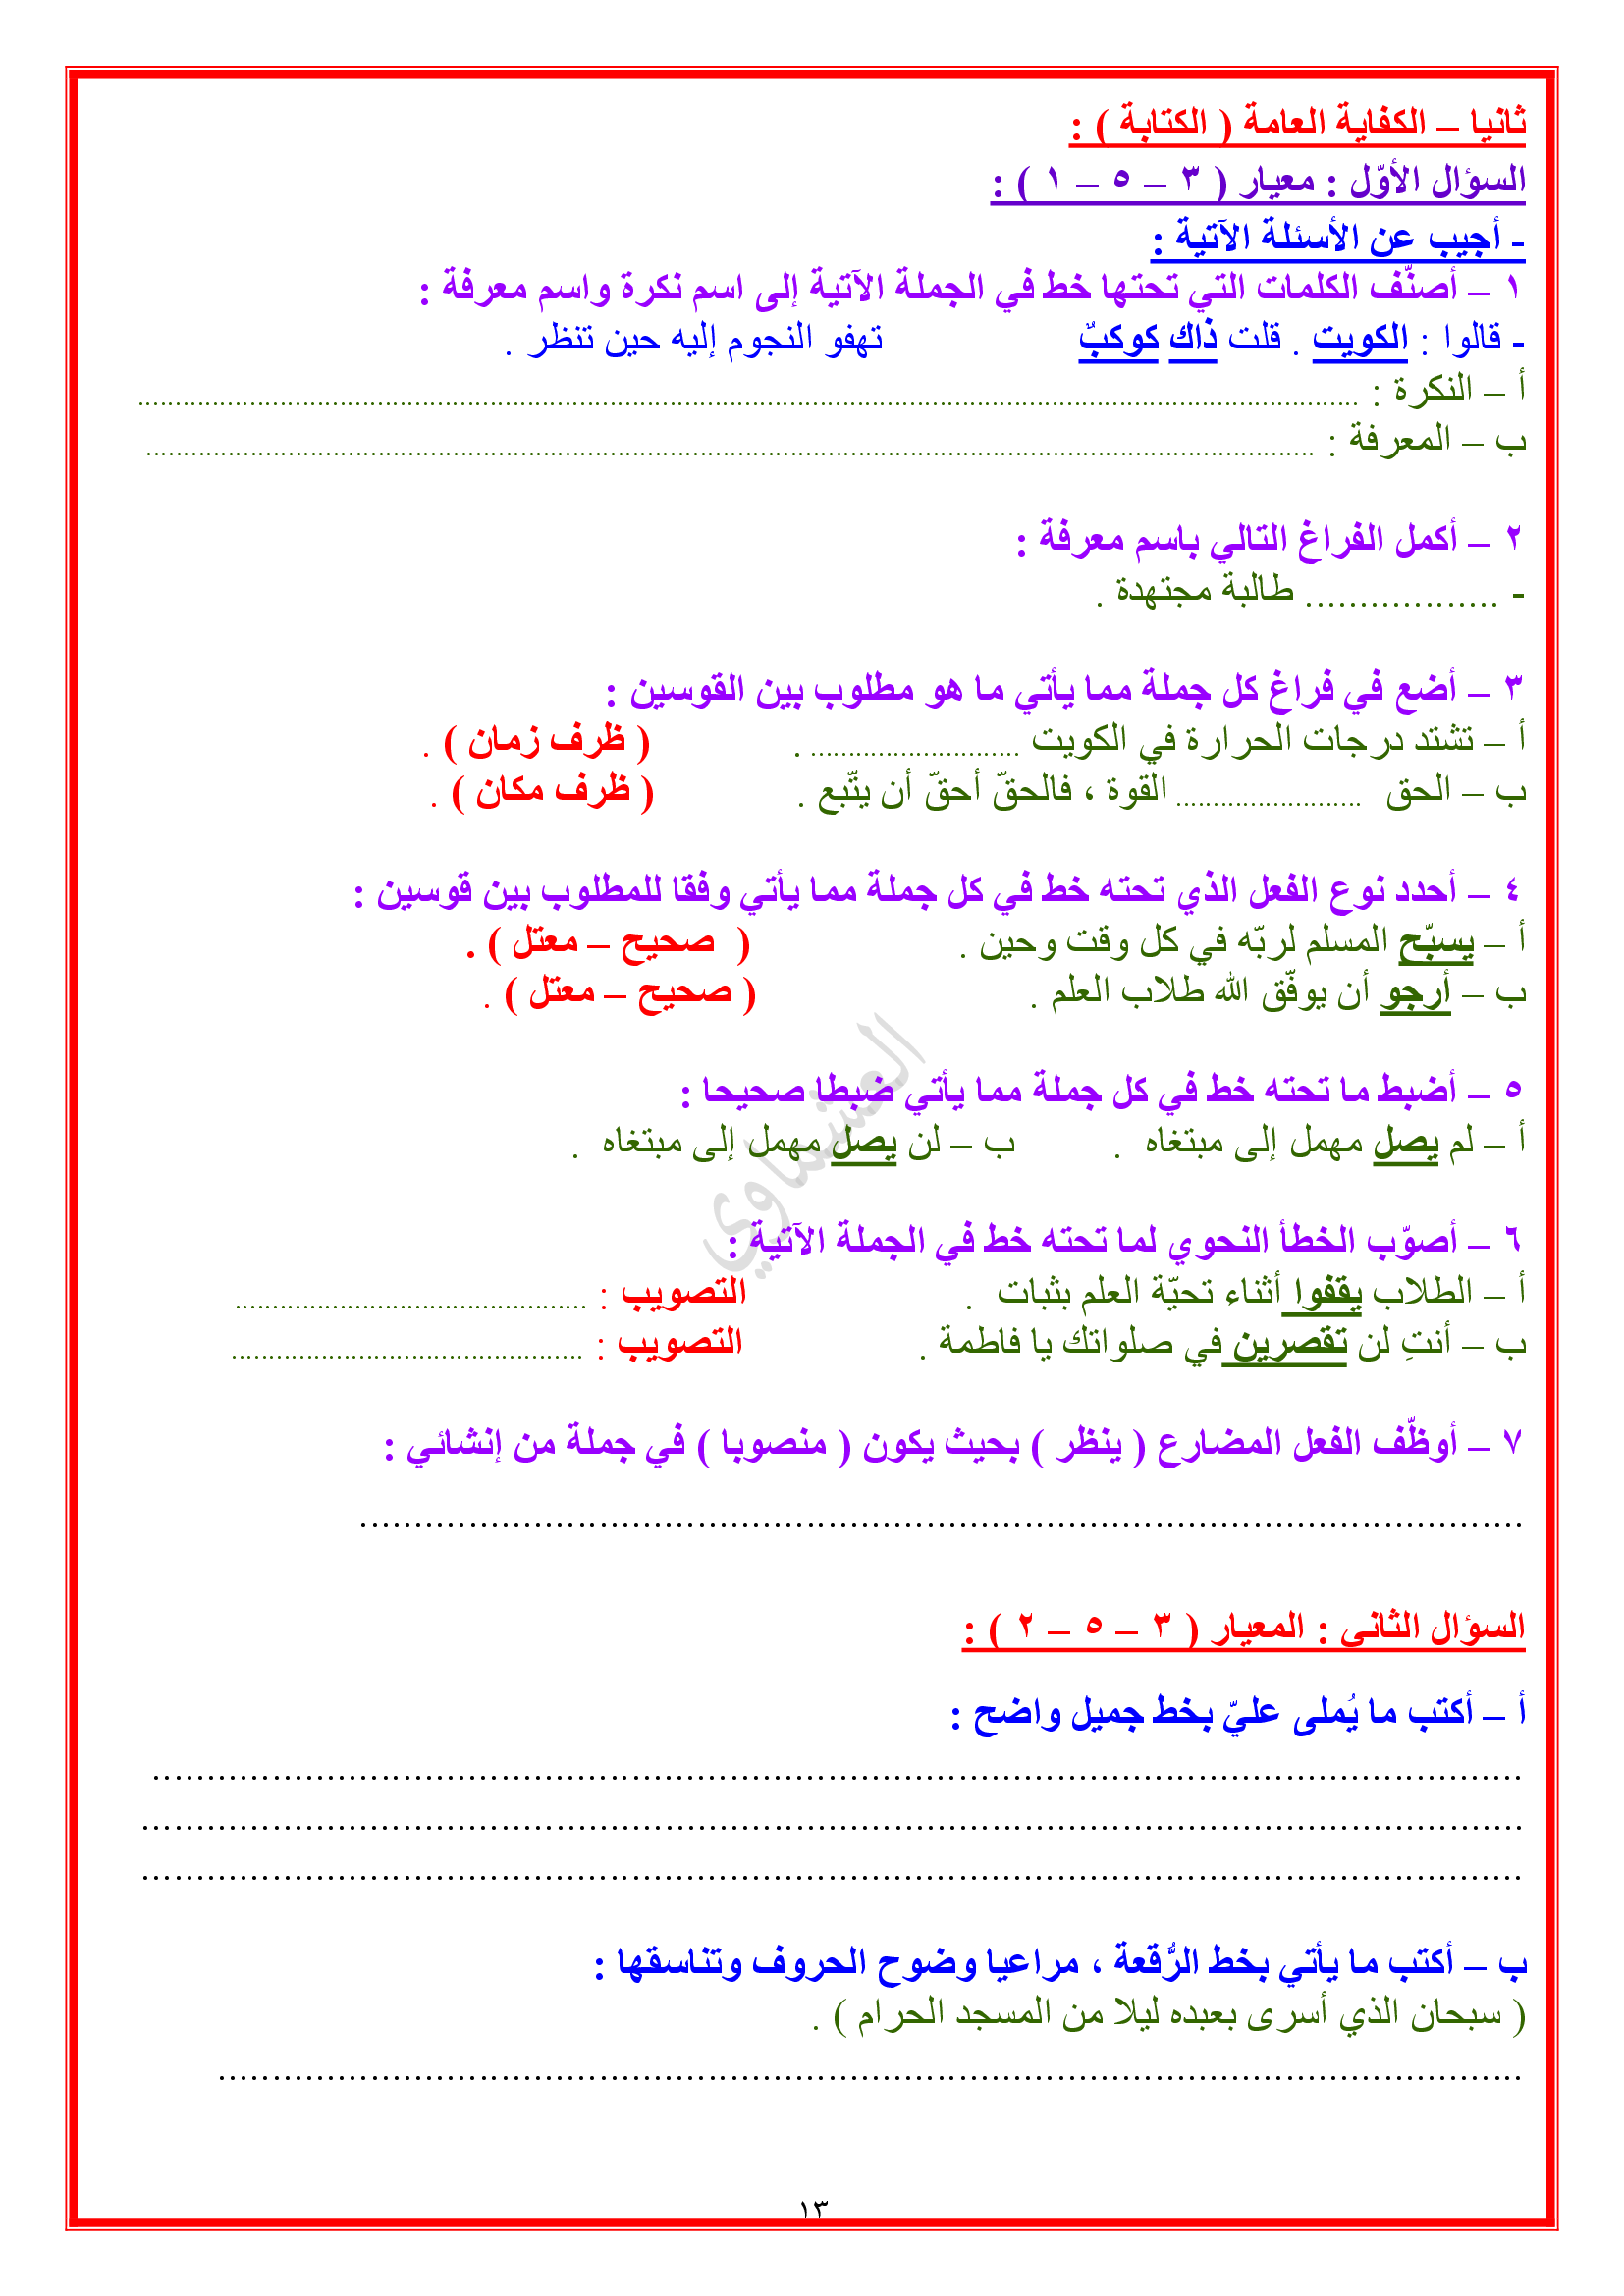 ثانيا – الكفاية العامة ( الكتابة ) :
السؤال الأوّل : معيار ( ٣ – ٥ – ١ ) :
- أجيب عن الأسئلة الآتية :
١ – أصنّف الكلمات التي تحتها خط في الجملة الآتية إلى اسم نكرة واسم معرفة :
- قالوا : الكويت . قلت ذاك كوكبٌ تهفو النجوم إليه حين تنظر .
أ – النكرة : ........................................................................
ب – المعرفة : ........................................................................
٢ – أكمل الفراغ التالي باسم معرفة :
- .................. طالبة مجتهدة .
٣ – أضع في فراغ كل جملة مما يأتي ما هو مطلوب بين القوسين :
أ – تشتد درجات الحرارة في الكويت ............................ . ( ظرف زمان ) .
ب – الحق ......................... القوة ، فالحقّ أحقّ أن يتّبع . ( ظرف مكان ) .
٤ – أحدد نوع الفعل الذي تحته خط في كل جملة مما يأتي وفقا للمطلوب بين قوسين :
أ – يسبّح المسلم لربّه في كل وقت وحين . ( صحيح – معتل ) .
ب – أرجو أن يوفّق الله طلاب العلم . ( صحيح – معتل ) .
٥ – أضبط ما تحته خط في كل جملة مما يأتي ضبطا صحيحا :
أ – لم يصل مهمل إلى مبتغاه . ب – لن يصل مهمل إلى مبتغاه .
٦ – أصوّب الخطأ النحوي لما تحته خط في الجملة الآتية :
أ – الطلاب يقفوا أثناء تحيّة العلم بثبات . التصويب : ...............................................
ب – أنتِ لن تقصرين في صلواتك يا فاطمة . التصويب : ...............................................
٧ – أوظّف الفعل المضارع ( ينظر ) بحيث يكون ( منصوبا ) في جملة من إنشائي :
........................................................................
السؤال الثاني : المعيار ( ٣ – ٥ – ٢ ) :
أ – أكتب ما يُملى عليّ بخط جميل واضح :
........................................................................
........................................................................
........................................................................
ب – أكتب ما يأتي بخط الرُّقعة ، مراعيا وضوح الحروف وتناسقها :
( سبحان الذي أسرى بعبده ليلا من المسجد الحرام ) .
........................................................................
١٣
العشماوي